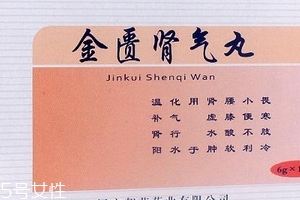 金匮肾气丸
Jinkui Shenqi Wan
温补肾阳
化气行水
用于
肾虚水肿
腰膝酸软
小便不利
畏寒肢冷
6g×
药业有限公司
5号女性